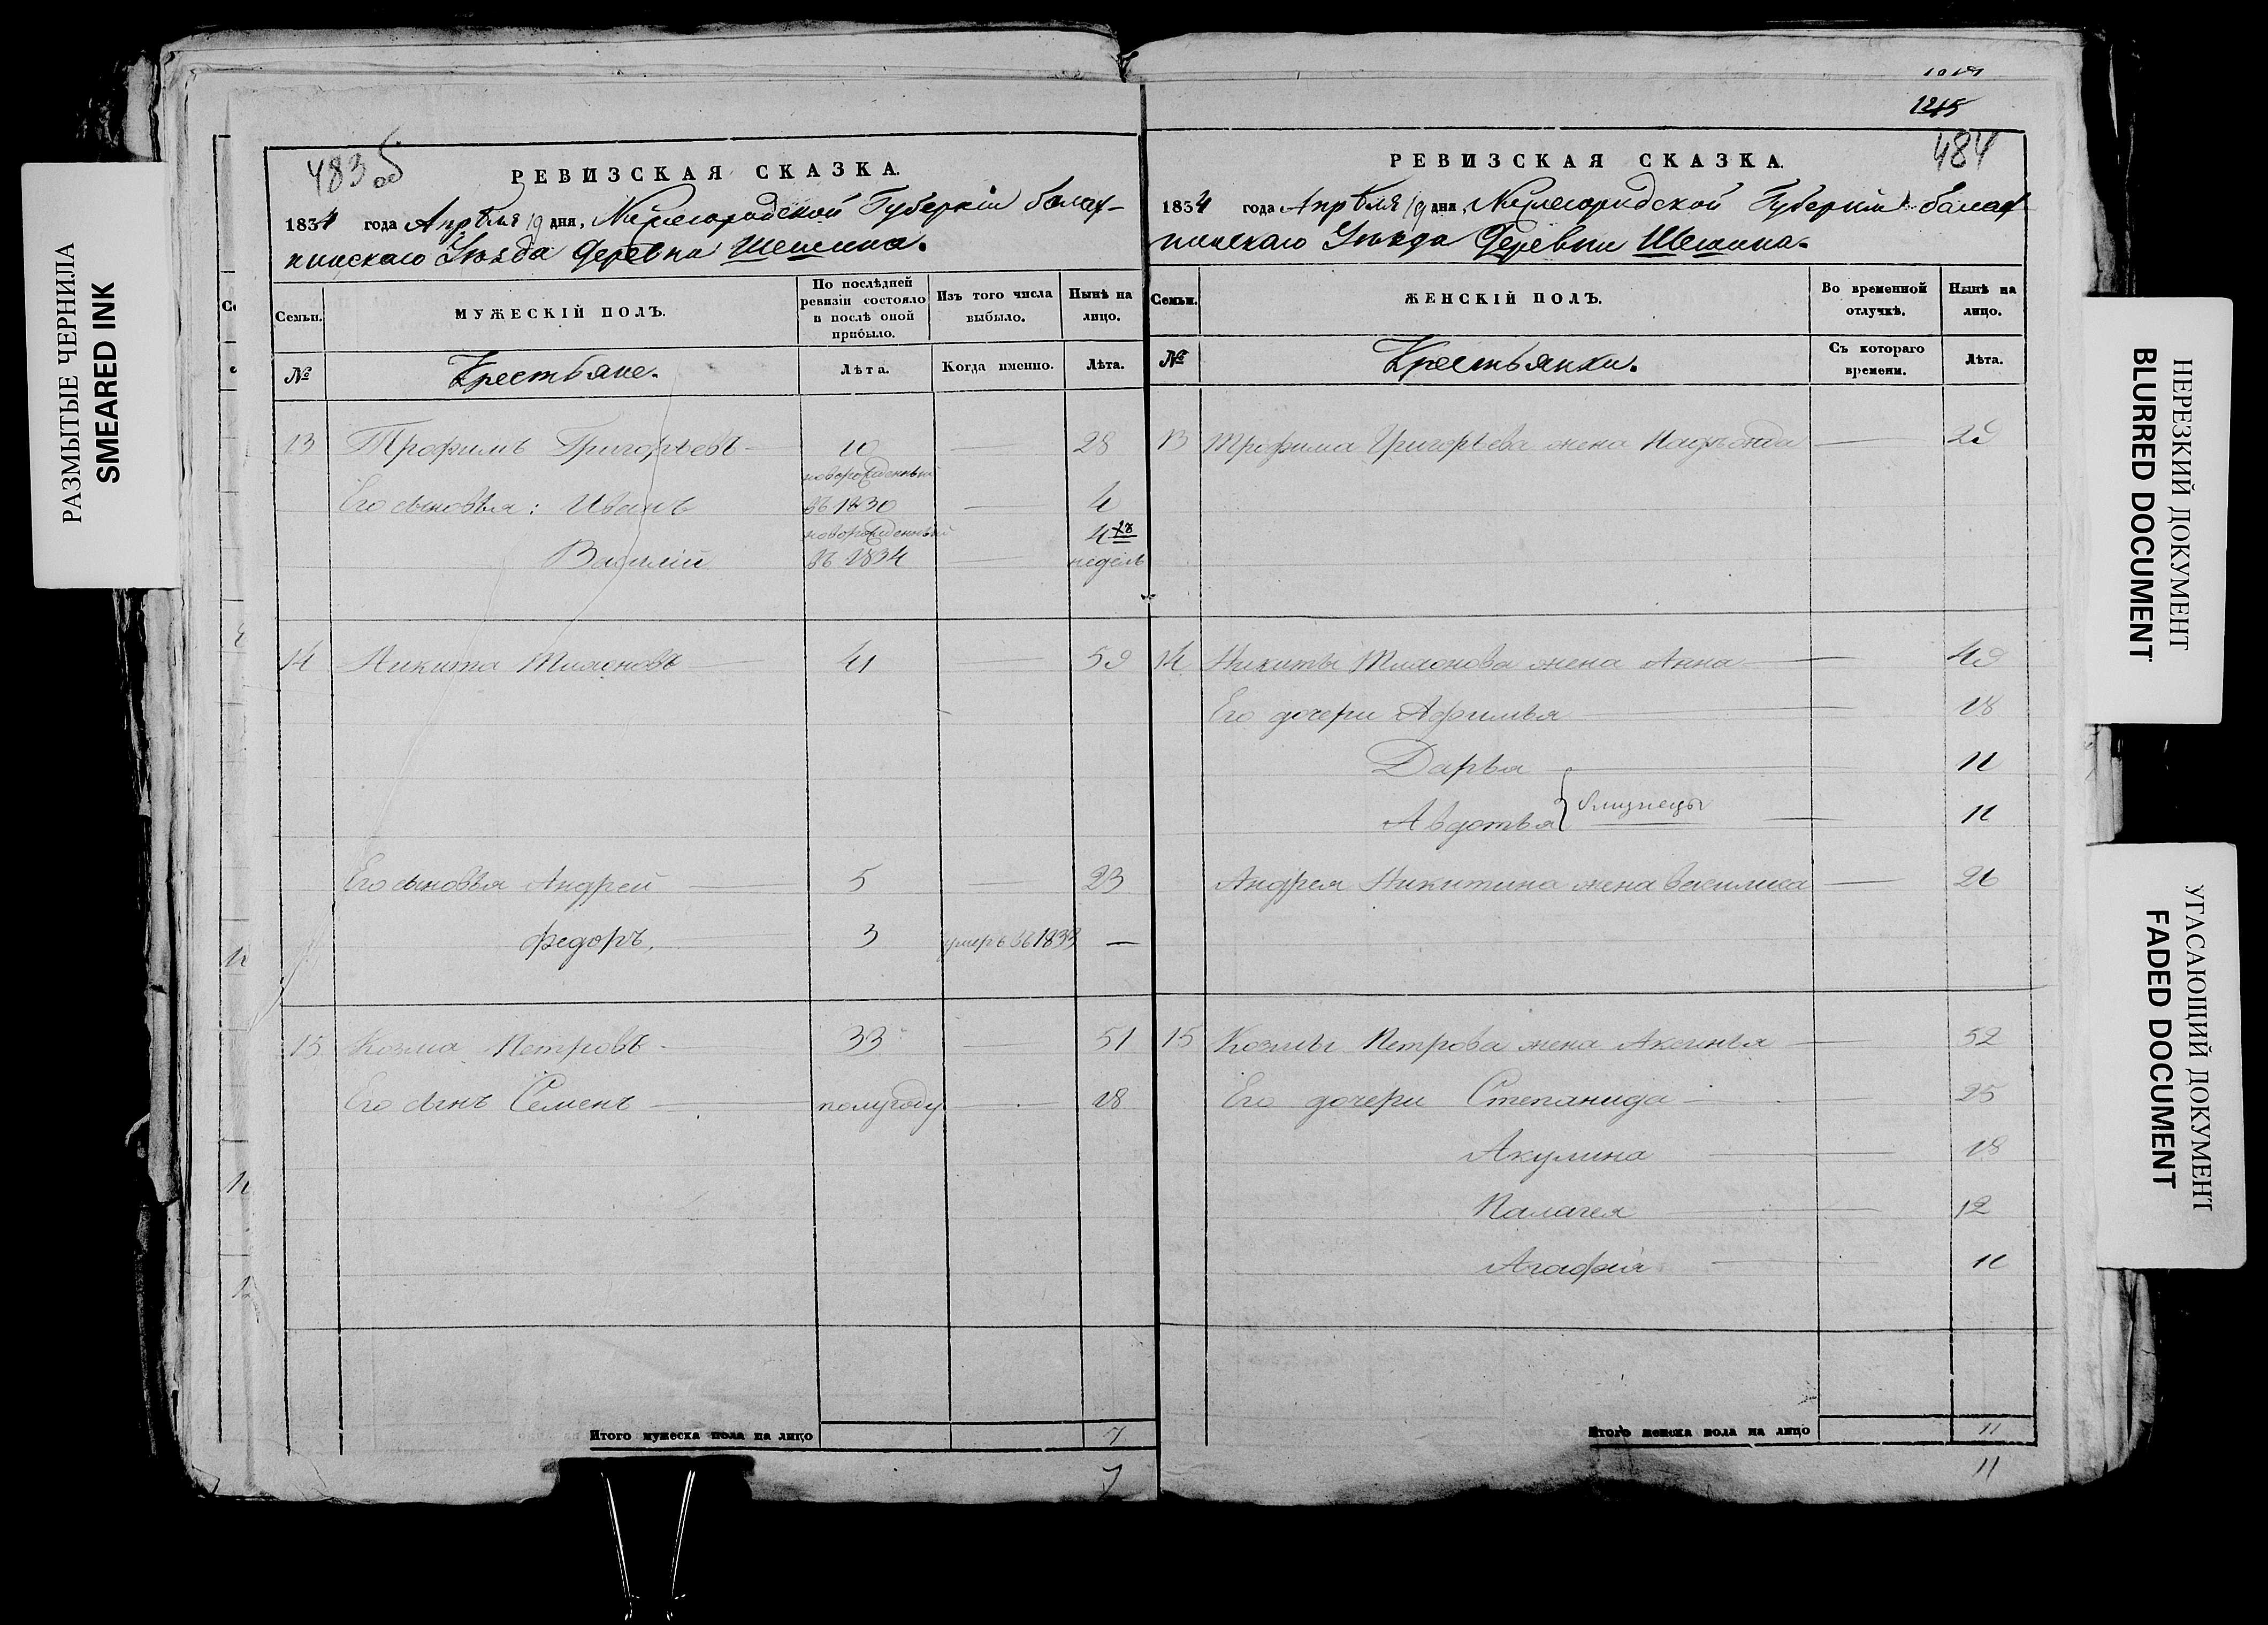 РАЗМЫТЫЕ ЧЕРНИЛА
SMEARED INK
483 об
РЕВИЗСКАЯ СКАЗКА.
1834 года Апрѣля 19 дня, Нижегородской Губерніи балах-
нинскаго Уѣзда Деревни Шешина.
Семьи.
МУЖЕСКІЙ ПОЛЪ.
По послѣдней ревизіи состояло и послѣ оной прибыло.
Изъ того числа выбыло.
Нынѣ на лицо.
№
Крестьяне.
Лѣта.
Когда именно.
Лѣта.
13 Трофимъ Григорьевъ 10 — 28
новорожденный
Его сыновья: Иванъ въ 1830 — 4
новорожденный 4хъ
Василій въ 1834 — недель
14 Никита 41 — 59
Его сыновья Андрей 5 — 23
Федоръ. 3 умеръ въ 1833 —
15 Козма Петровъ 33 — 51
Его сынъ Семенъ полугоду — 18
Итого мужеска пола на лицо 7
7
1215
484
РЕВИЗСКАЯ СКАЗКА.
1834 года Апрѣля 19 дня, Нижегородской Губерніи балах
нинскаго Уѣзда Деревни Шешина.
Семьи.
ЖЕНСКІЙ ПОЛЪ.
Во временной отлучкѣ.
Нынѣ на лицо.
№
Крестьянки.
Съ котораго времени.
Лѣта.
13 Трофима Григорьева жена — 29
14 Никиты жена Анна — 49
Его дочери Афимья 18
Дарья 11
близнецы
Авдотья 11
Андрея Никитина жена Василиса — 26
15 Козмы Петрова жена Аксинья — 52
Его дочери Степанида — 25
Акулина 18
Палагея 12
Агафія 11
Итого женска пола на лицо 11
11
НЕРЕЗКИЙ ДОКУМЕНТ
BLURRED DOCUMENT
УГАСАЮЩИЙ ДОКУМЕНТ
FADED DOCUMENT